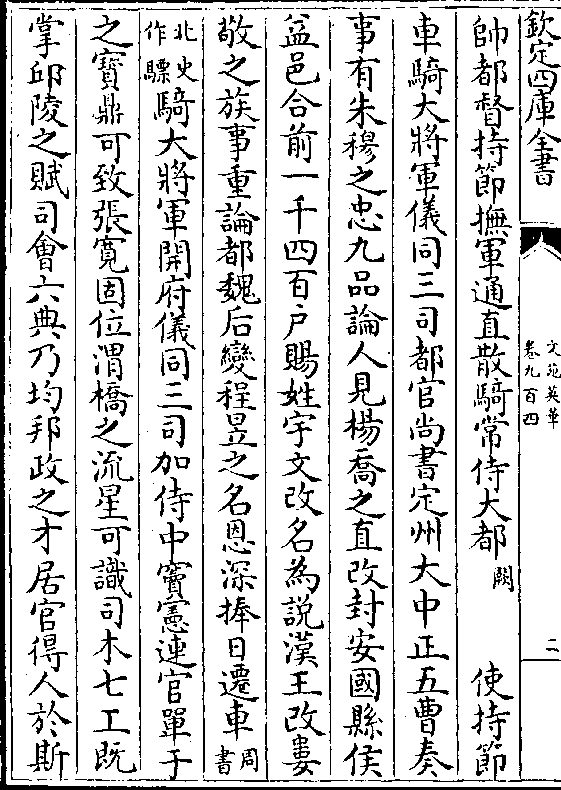 欽定四庫全書
文苑英華
卷九百四
二
帥都督持節撫軍通直散騎常侍大都闕 使持節
車騎大將軍儀同三司都官尚書定州大中正五曹奏
事有朱穆之忠九品論人見楊喬之直改封安國縣侯
益邑合前一千四百户賜姓宇文改名為説漢王改婁
敬之族事重論都魏后變程昱之名恩深捧日遷車周書
北史作驃騎大將軍開府儀同三司加侍中竇憲連官單于
之寳鼎可致張寛固位渭橋之流星可識司木七工既
掌邱陵之賦司會六典乃均邦政之才居官得人於斯